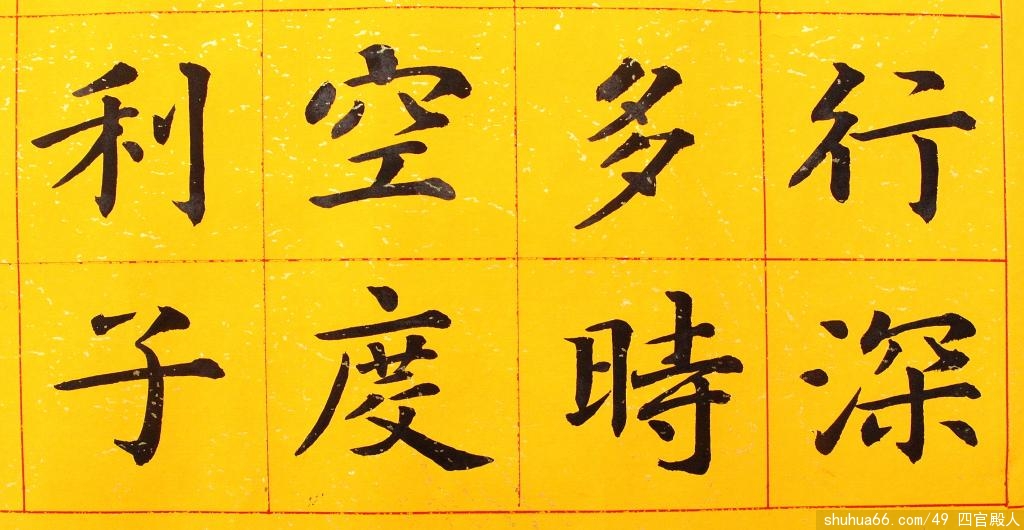 行深
多時
空度
利子
shuhua66.com/49 四官殿人